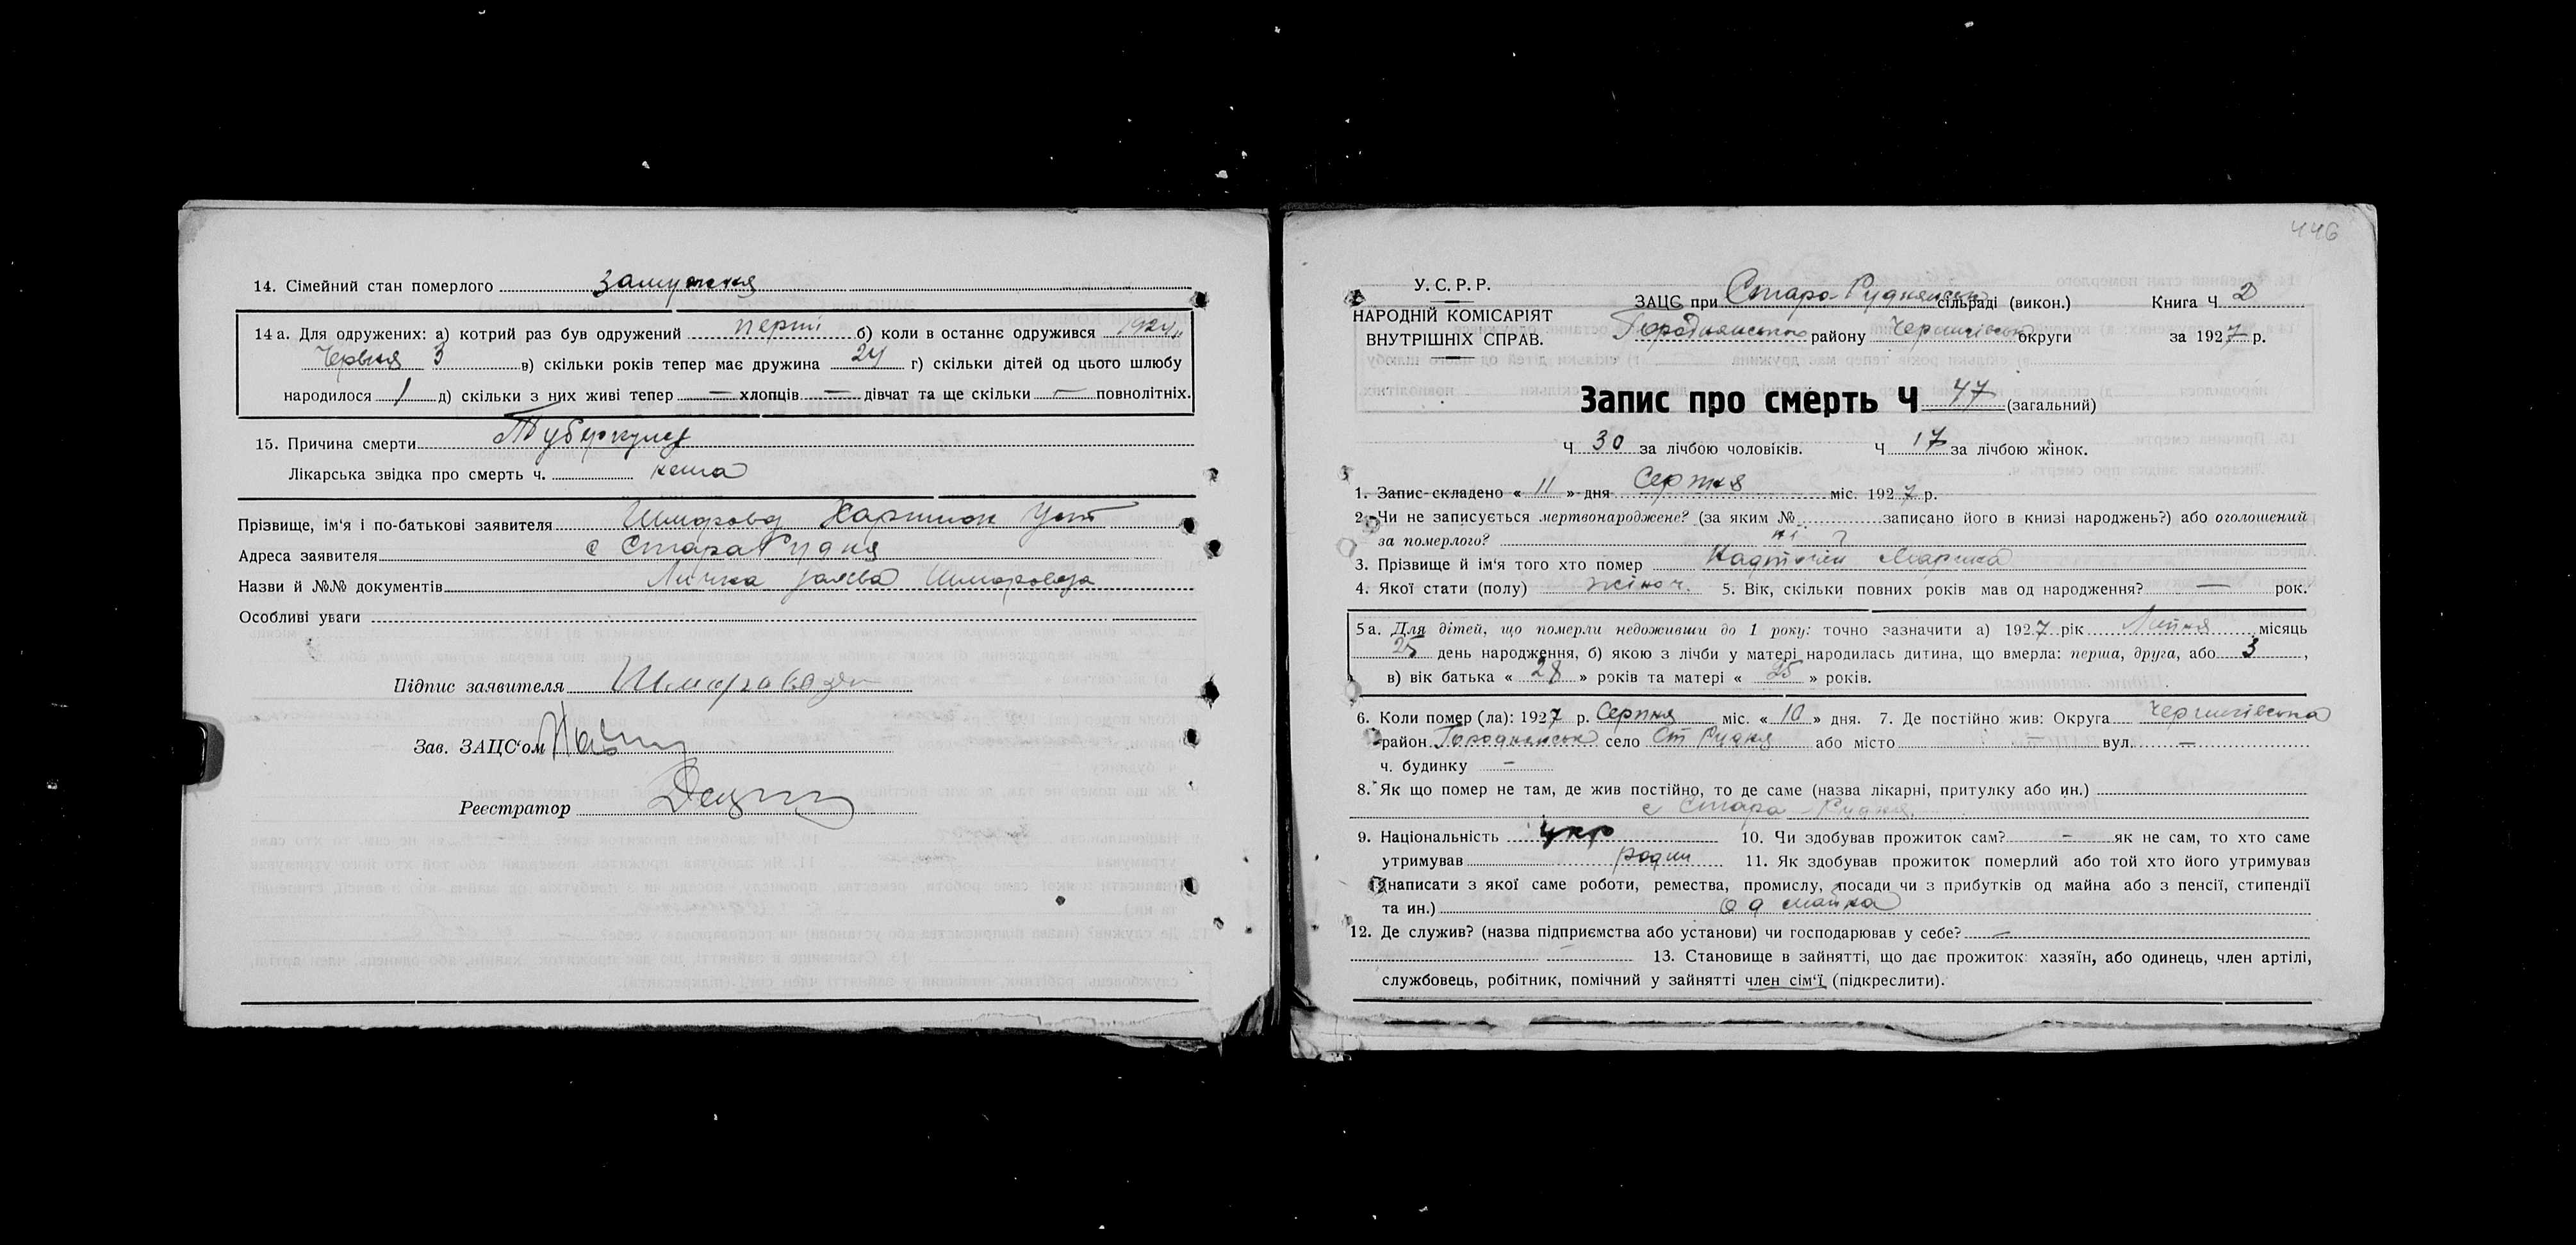 14. Сімейний стан померлого замужня
14 а. Для одружених: а) котрий раз був одружений перш б) коли в останнє одружився 1924
Червня 3 в) скільки років тепер має дружина 24 г) скільки дітей од цього шлюбу
народилося 1 д) скільки з них живі тепер — хлопців — дівчат та ще скільки — повнолітніх.
15. Причина смерти Туберкулез
Лікарська звідка про смерть ч. нема
Прізвище, ім'я і по-батькові заявителя Харитон Уст
Адреса заявителя с Стара Рудня
Назви й №№ документів Лична заява
Особливі уваги
Підпис заявителя
Зав. ЗАЦС'ом
Реєстратор
446
У. С. Р. Р.
НАРОДНІЙ КОМІСАРІЯТ
ВНУТРІШНІХ СПРАВ.
ЗАЦС при Старо-Руднянськ сільраді (викон.) Книга Ч. 2
Городнянського району Чернигівськ округи за 1927 р.
Запис про смерть Ч 47 (загальний)
Ч 30 за лічбою чоловіків. Ч 17 за лічбою жінок.
1. Запис складено « 11 » дня Серпня міс. 1927 р.
2. Чи не записується мертвонароджене? (за яким № записано його в книзі народжень?) або оголошений
за померлого? ні
3. Прізвище й ім'я того хто помер Марина
4. Якої стати (полу) жіноч. 5. Вік, скільки повних років мав од народження? — рок.
5 а. Для дітей, що померли недоживши до 1 року: точно зазначити а) 1927 рік Липня місяць
25 день народження, б) якою з лічби у матері народилась дитина, що вмерла: перша, друга, або 3,
в) вік батька « 28 » років та матері « 25 » років.
6. Коли помер (ла): 1927 р. Серпня міс. « 10 » дня. 7. Де постійно жив: Округа Чернигівська
район Городненськ село Ст Рудня або місто — вул. —
ч. будинку —
8. Як що помер не там, де жив постійно, то де саме (назва лікарні, притулку або ин.)
с Стара-Рудня.
9. Національність укр 10. Чи здобував прожиток сам? — як не сам, то хто саме
утримував родин 11. Як здобував прожиток померлий або той хто його утримував
(написати з якої саме роботи, ремества, промислу, посади чи з прибутків од майна або з пенсії, стипендії
та ин.) Од майна
12. Де служив? (назва підприємства або установи) чи господарював у себе? —
— 13. Становище в зайнятті, що дає прожиток: хазяїн, або одинець, член артілі,
службовець, робітник, помічний у зайнятті член сім'ї (підкреслити).